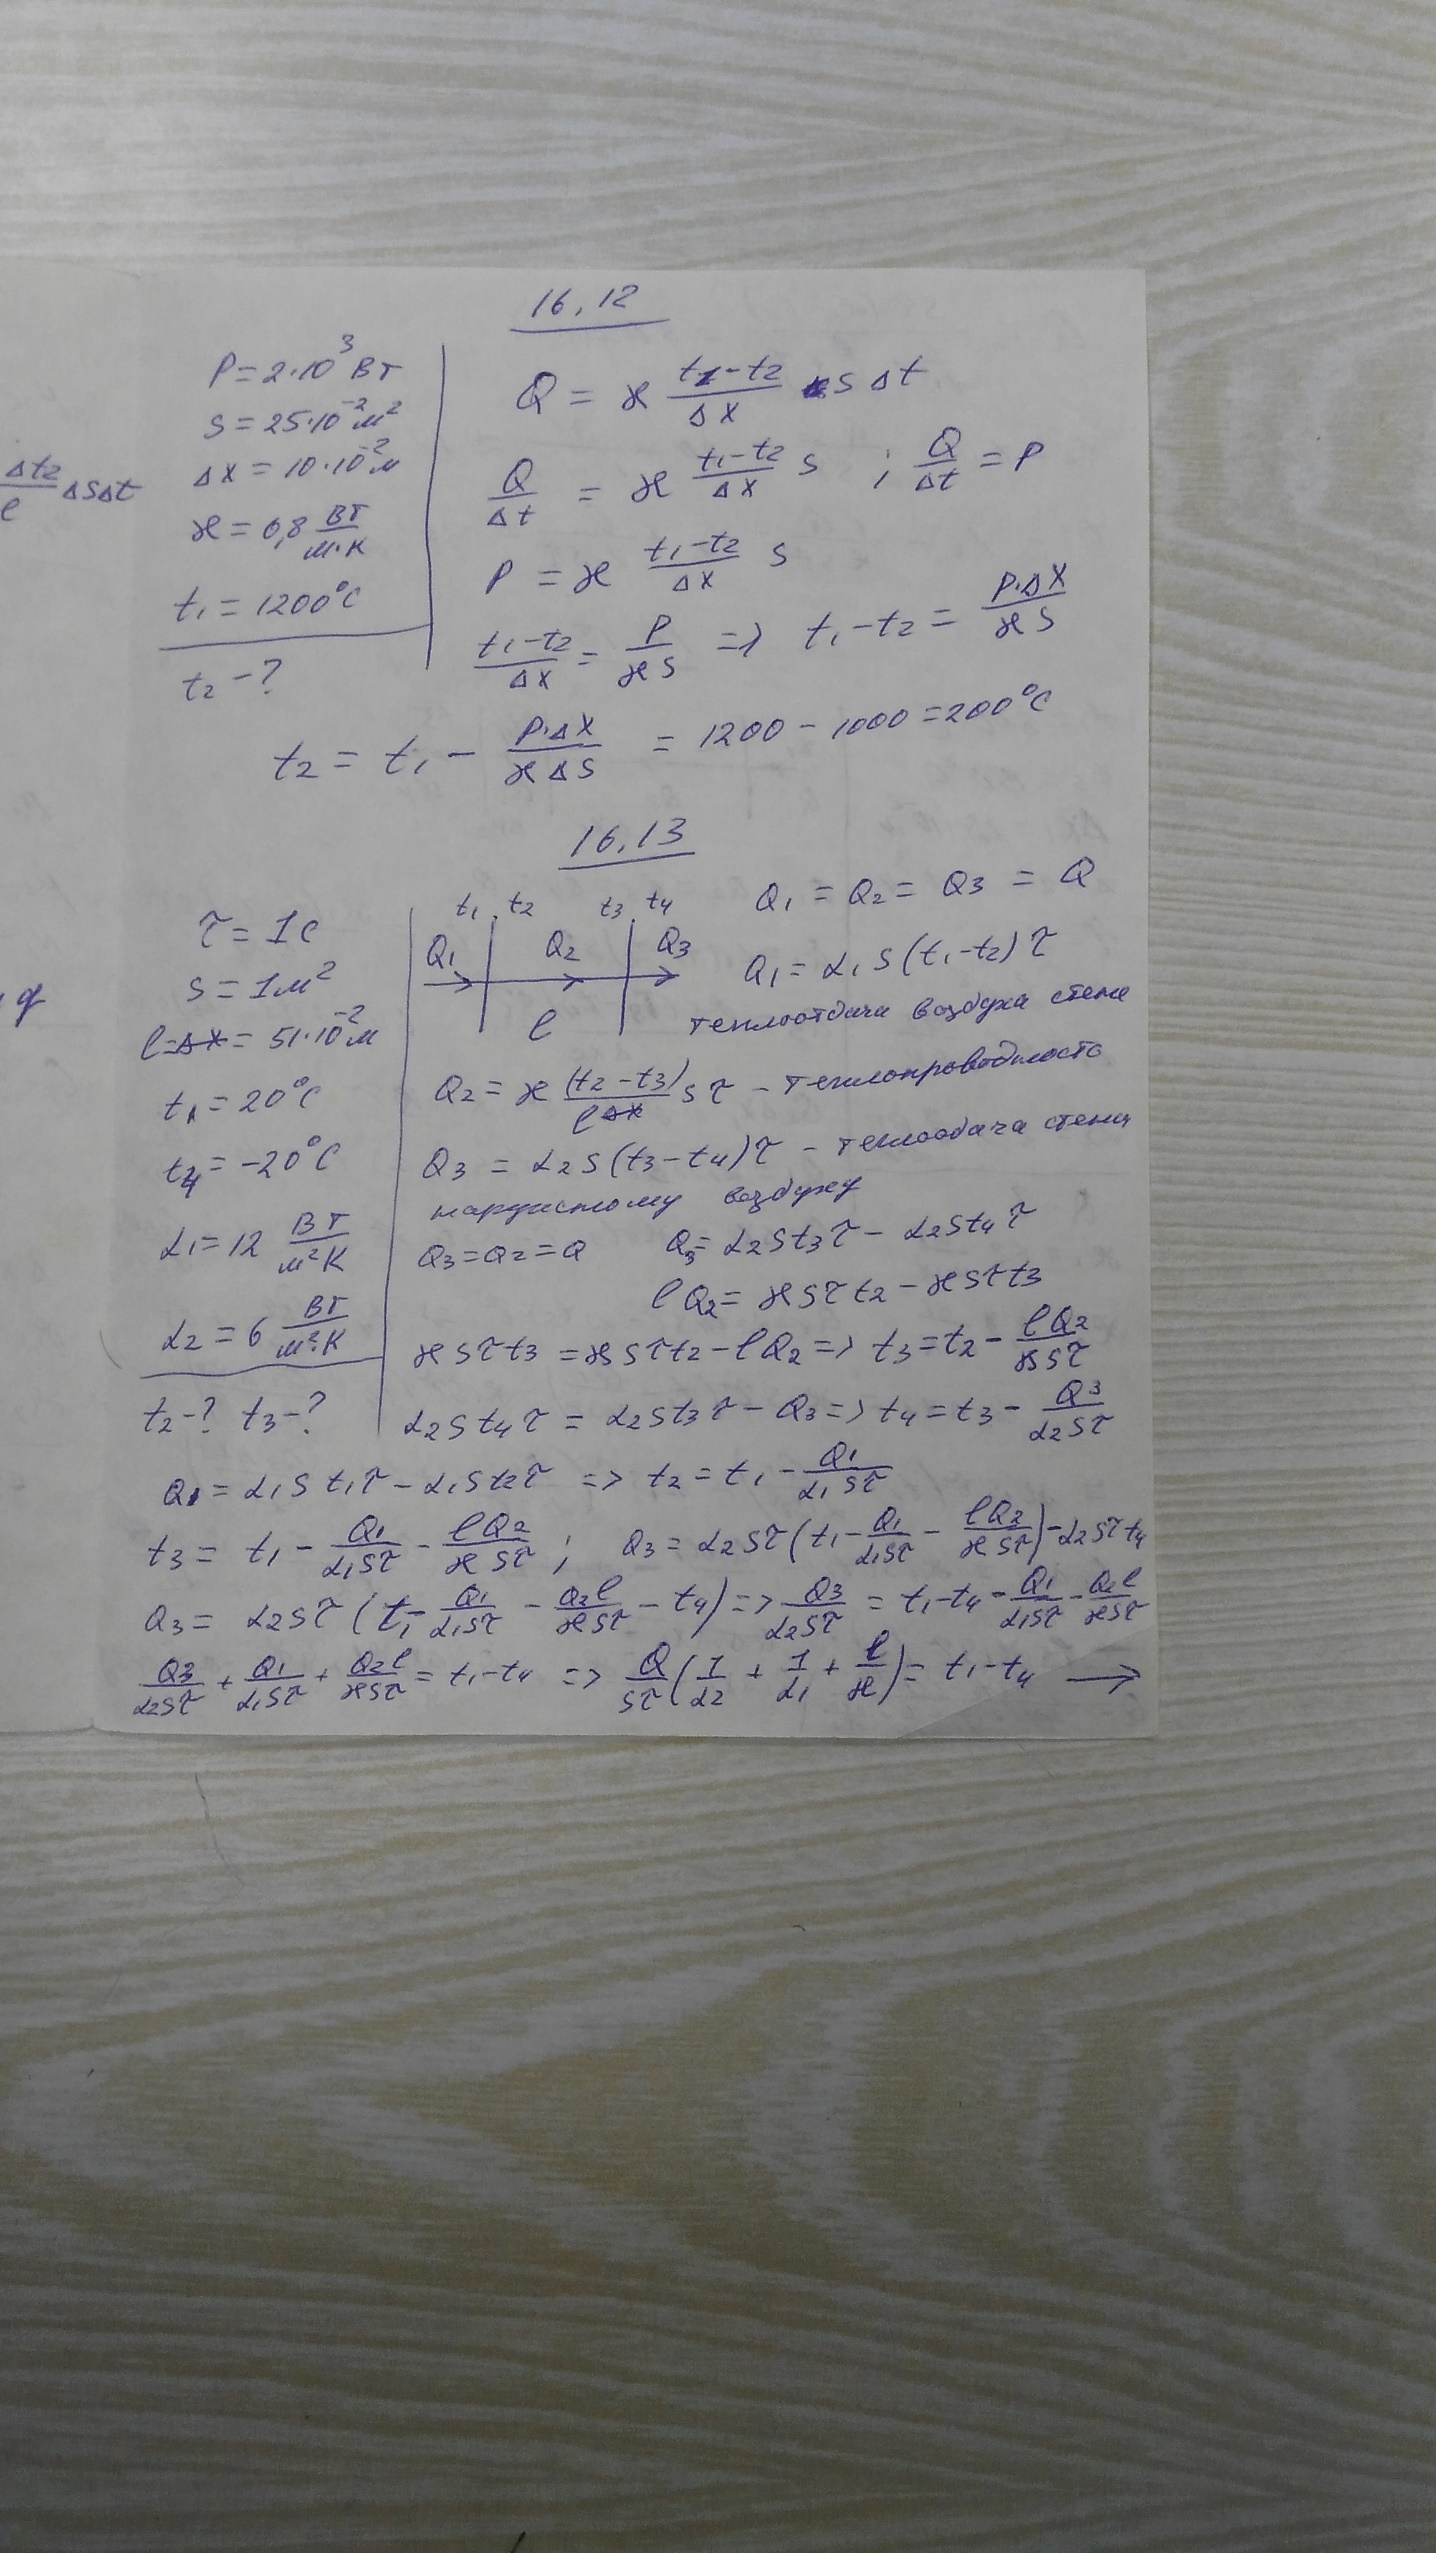 16,12
P = 2·10³ Вт
S = 25·10⁻² м²
Δx = 10·10⁻² м
ϰ = 0,8 Вт/м·К
t₁ = 1200°C
t₂ - ?
Q = ϰ (t₁-t₂)/Δx SΔt
Q/Δt = ϰ (t₁-t₂)/Δx S ; Q/Δt = P
P = ϰ (t₁-t₂)/Δx S
(t₁-t₂)/Δx = P/ϰS => t₁-t₂ = P·Δx/ϰS
t₂ = t₁ - P·Δx/ϰΔS = 1200 - 1000 = 200°C
Δt₂/l ΔSΔt
16,13
τ = 1c
S = 1м²
l = Δx = 51·10⁻² м
t₁ = 20°C
t₄ = -20°C
α₁ = 12 Вт/м²К
α₂ = 6 Вт/м²·К
t₂ - ? t₃ - ?
t₁ t₂ t₃ t₄
Q₁ Q₂ Q₃
l
Q₁ = Q₂ = Q₃ = Q
Q₁ = α₁S(t₁-t₂)τ
теплоотдача воздуха стене
Q₂ = ϰ (t₂-t₃)/l Sτ - теплопроводность
Q₃ = α₂S(t₃-t₄)τ - теплоодача стены
наружному воздуху
Q₃ = Q₂ = Q Q₃ = α₂St₃τ - α₂St₄τ
lQ₂ = ϰSτt₂ - ϰSτt₃
ϰSτt₃ = ϰSτt₂ - lQ₂ => t₃ = t₂ - lQ₂/ϰSτ
α₂St₄τ = α₂St₃τ - Q₃ => t₄ = t₃ - Q₃/α₂Sτ
Q₁ = α₁St₁τ - α₁St₂τ => t₂ = t₁ - Q₁/α₁Sτ
t₃ = t₁ - Q₁/α₁Sτ - lQ₂/ϰSτ ; Q₃ = α₂Sτ(t₁ - Q₁/α₁Sτ - lQ₂/ϰSτ) - α₂Sτt₄
Q₃ = α₂Sτ(t₁ - Q₁/α₁Sτ - Q₂l/ϰSτ - t₄) => Q₃/α₂Sτ = t₁-t₄ - Q₁/α₁Sτ - Q₂l/ϰSτ
Q₃/α₂Sτ + Q₁/α₁Sτ + Q₂l/ϰSτ = t₁-t₄ => Q/Sτ (1/α₂ + 1/α₁ + l/ϰ) = t₁-t₄ →